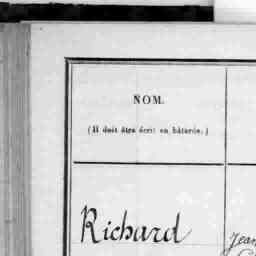 NOM.
(Il doit être écrit en bâtarde.)
Richard
Jean